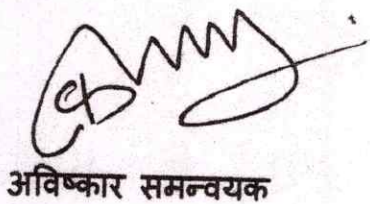 अविष्कार समन्वयक